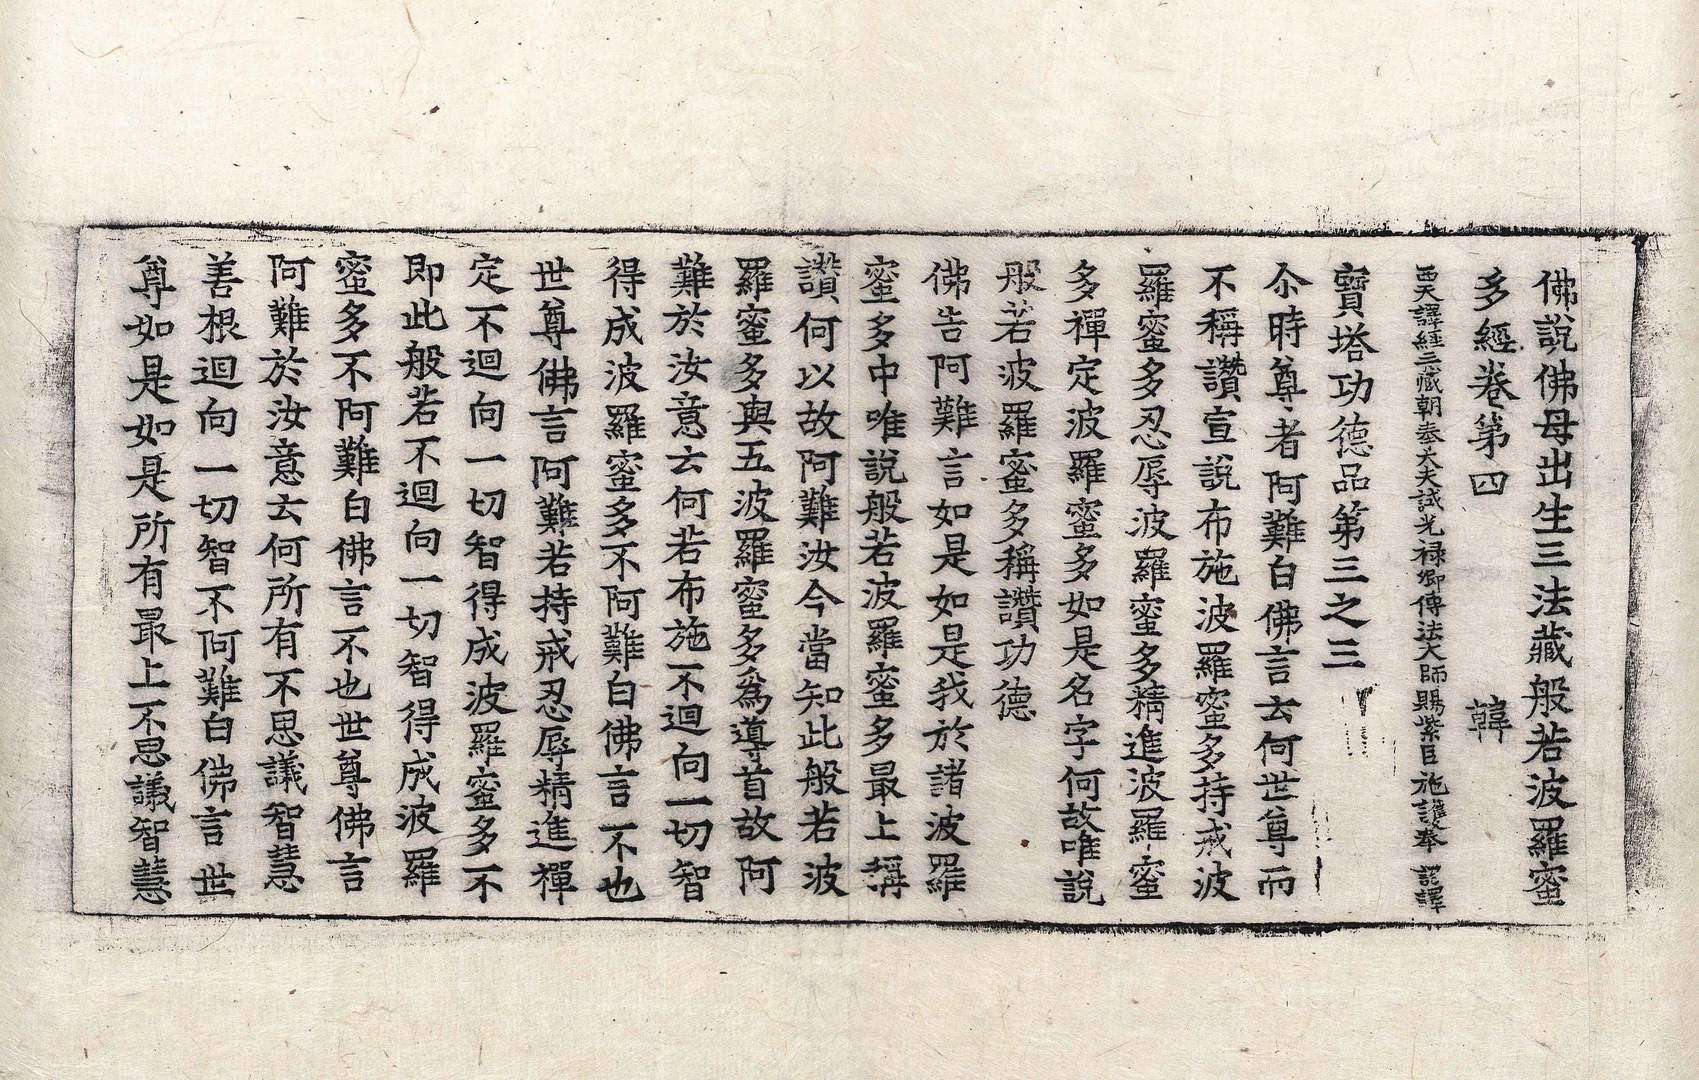 佛說佛母出生三法藏般若波羅蜜
多經卷第四 韓
西天譯經三藏朝奉大夫試光祿卿傳法大師賜紫臣施護奉 詔譯
寶塔功德品第三之三
尒時尊者阿難白佛言云何世尊而
不稱讚宣說布施波羅蜜多持戒波
羅蜜多忍辱波羅蜜多精進波羅蜜
多禪定波羅蜜多如是名字何故唯說
般若波羅蜜多稱讚功德
佛告阿難言如是如是我於諸波羅
蜜多中唯說般若波羅蜜多最上稱
讚何以故阿難汝今當知此般若波
羅蜜多與五波羅蜜多爲導首故阿
難於汝意云何若布施不迴向一切智
得成波羅蜜多不阿難白佛言不也
世尊佛言阿難若持戒忍辱精進禪
定不迴向一切智得成波羅蜜多不
即此般若不迴向一切智得成波羅
蜜多不阿難白佛言不也世尊佛言
阿難於汝意云何所有不思議智慧
善根迴向一切智不阿難白佛言世
尊如是如是所有最上不思議智慧